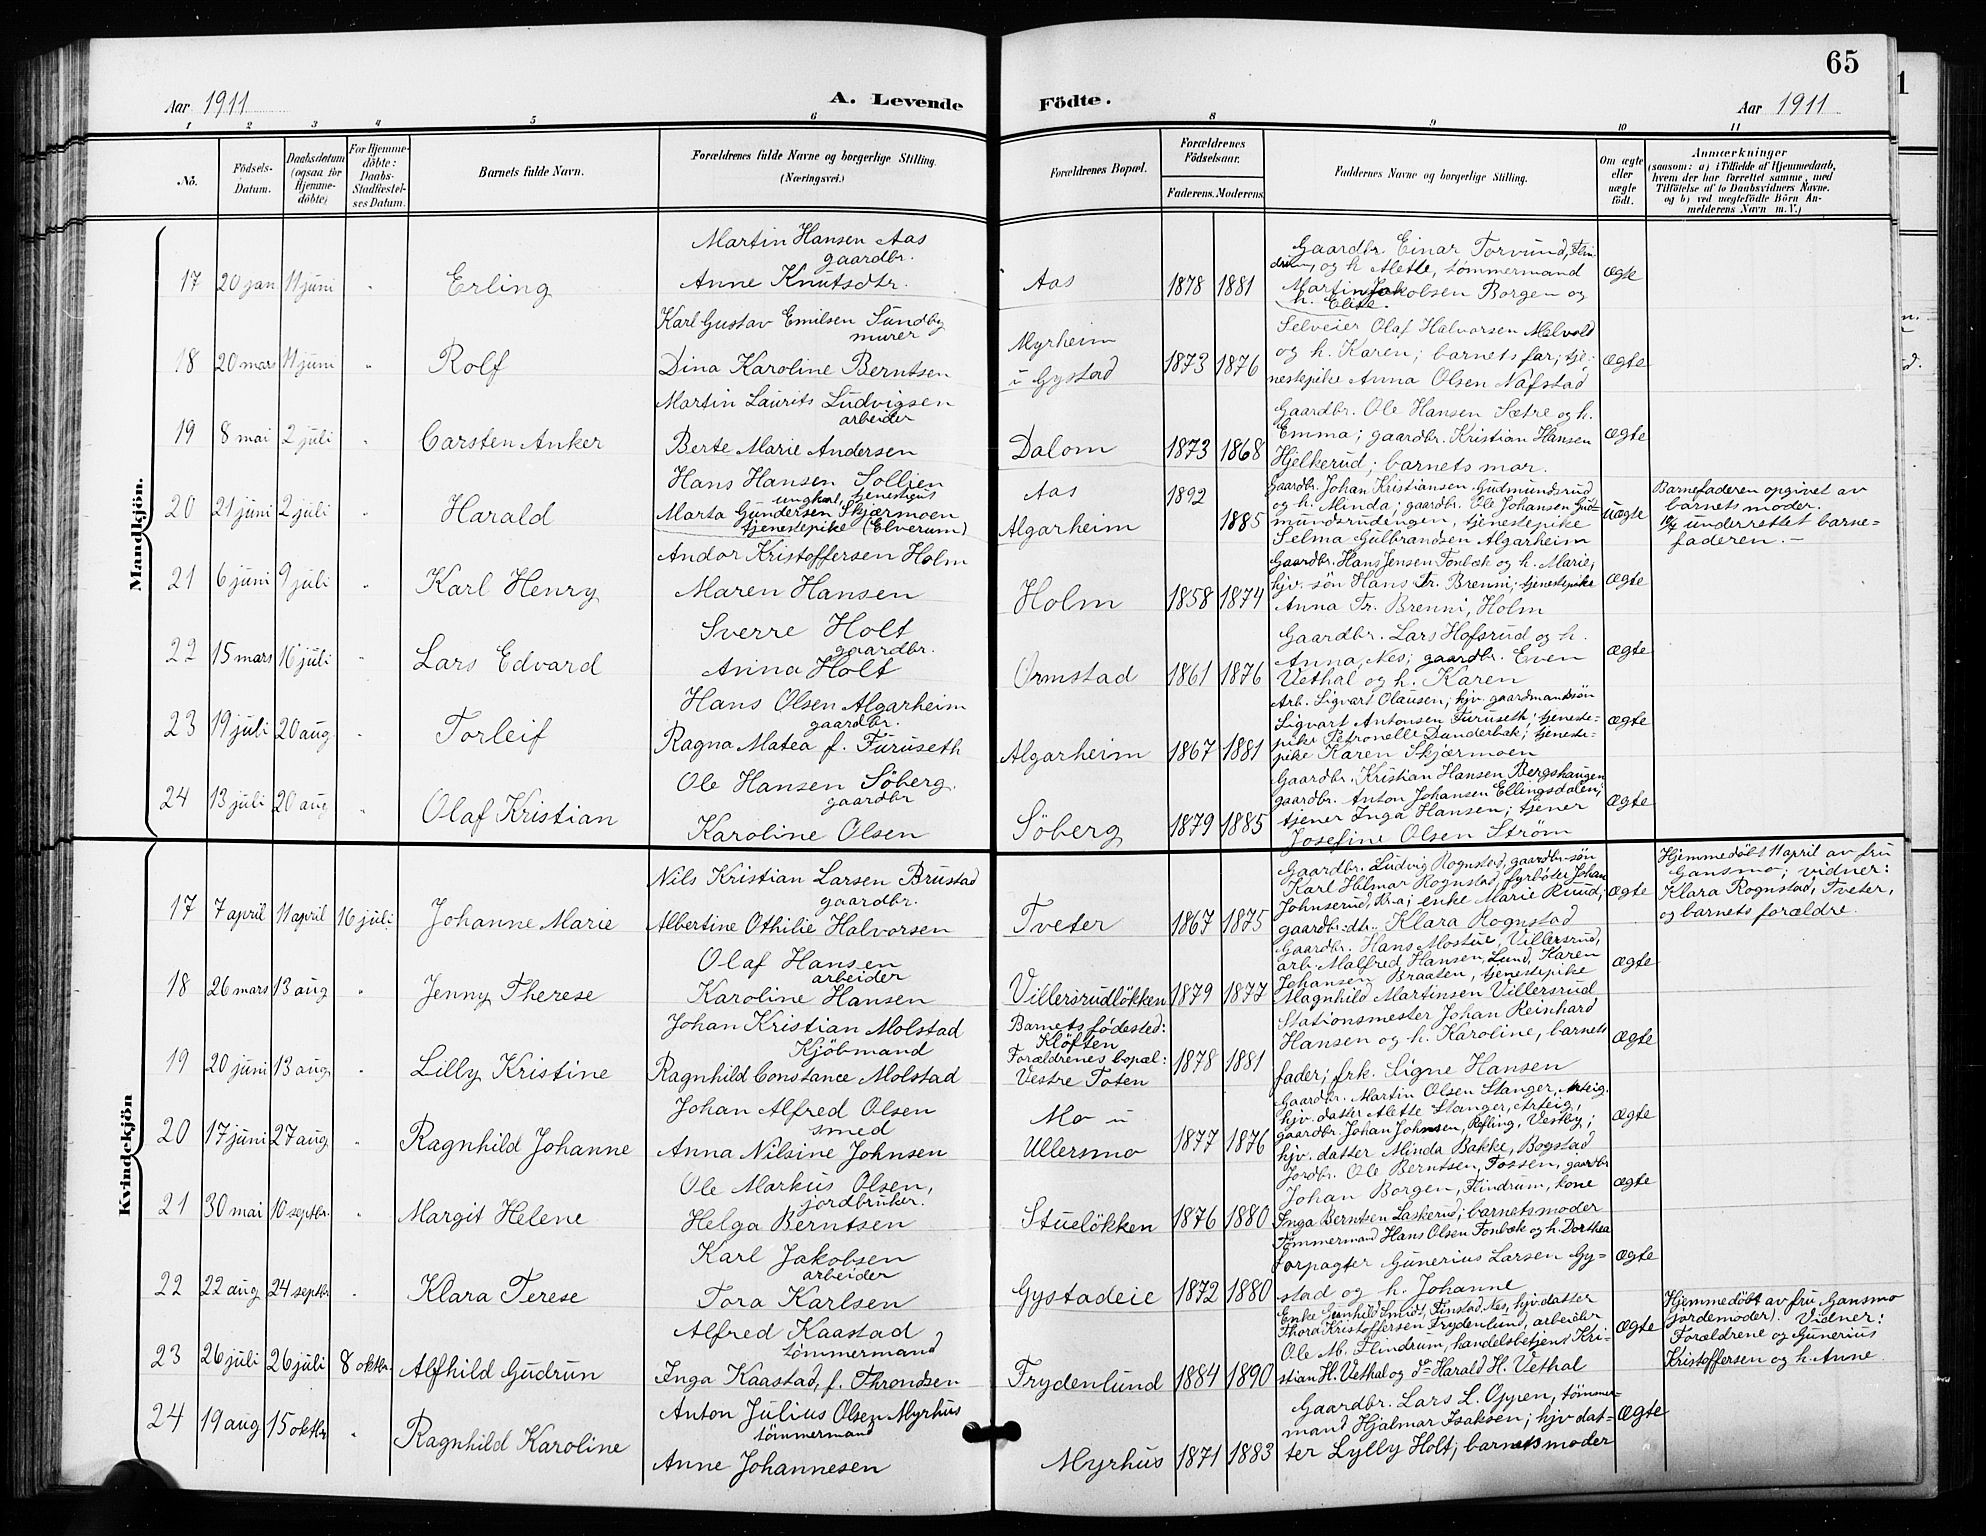 65
Aar 1911
A. Levende
Födte.
Aar 1911
1 2 3 4 5 6 8 9 10 11
No.
Födsels-
Datum.
Daabsdatum
(ogsaa for
Hjemme-
døbte)
For Hjemme-
døbte:
Daabs-
Stadfæstel-
ses Datum.
Barnets fulde Navn.
Forældrenes fulde Navne og borgerlige Stilling.
(Næringsvei.)
Forældrenes Bopæl.
Forældrenes
Födselsaar.
Faderens. Moderens.
Faddernes Navne og borgerlige Stilling.
Om ægte
eller
uægte
födt.
Anmærkninger
(saasom: a) i Tilfælde af Hjemmedaab,
hvem der har forrettet samme, med
Tilföielse af to Daabsvidners Navne.
og b) ved uægtefödte Börn An-
melderens Navn m.V.)
Mandkjön.
17 20 jan 11 juni " Erling
Martin Hansen Aas
gaardbr.
Anne Knutsdtr.
Aas 1878 1881
Gaardbr. Einar Torvund, Flin-
drum, og h. Alette, tømmermand
Martin Jakobsen Borgen og
h. Elise
ægte
18 20 mars 11 juni " Rolf
Karl Gustav Emilsen Sundby
murer
Dina Karoline Berntsen
Myrheim
i Gystad
1873 1876
Selveier Olaf Halvorsen Melvold
og h. Karen; barnets far; tje-
nestepike Anna Olsen Nafstad
ægte
19 8 mai 2 juli " Carsten Anker
Martin Laurits Ludvigsen
arbeider
Berte Marie Andersen
Dalom 1873 1868
Gaardbr. Ole Hansen Sætre og h.
Emma; gaardbr. Kristian Hansen
Hjelkerud; barnets mor.
ægte
20 21 juni 2 juli " Harald
Hans Hansen Sollien
ungkarl, tjenestegut
Marta Gundersen Skjærmoen
tjenestepike (Elverum)
Aas 1892
Algarheim 1885
Gaardbr. Johan Kristiansen Gudmundsrud
og h. Minda; gaardbr. Ole Johansen Gud-
mundsrudengen, tjenestepike
Selma Gulbrandsen Algarheim
uægte
Barnefaderen opgivet av
barnets moder.
underrettet barne-
faderen. –
21 6 juni 9 juli " Karl Henry
Andor Kristoffersen Holm
Maren Hansen
Holm 1858 1874
Gaardbr. Hans Jensen Tonbæk og h. Marie,
hjv. søn Hans Fr. Brenni; tjenestepike
Anna Fr. Brenni, Holm
ægte
22 15 mars 16 juli " Lars Edvard
Sverre Holt
gaardbr.
Anna Holt
Ormstad 1861 1876
Gaardbr. Lars Hofsrud og h.
Anna, Nes; gaardbr. Even
Vethal og h. Karen
ægte
23 19 juli 20 aug " Torleif
Hans Olsen Algarheim
gaardbr.
Ragna Matea f. Furuseth
Algarheim 1867 1881
Arb. Sigvart Olausen, hjv. gaardmandssøn
Sigvart Antonsen Furuseth; tjeneste-
pike Petronelle Dunderbak; tjeneste-
pike Karen Skjærmoen
ægte
24 13 juli 20 aug " Olaf Kristian
Ole Hansen Söberg.
gaardbr
Karoline Olsen
Söberg 1879 1885
Gaardbr. Kristian Hansen Bergshaugen
gaardbr. Anton Johansen Ellingsdalen;
tjener Inga Hansen; tjener
Josefine Olsen Strøm
ægte
Kvindekjön
17 7 april 11 april 16 juli. Johanne Marie
Nils Kristian Larsen Brustad
gaardbr.
Albertine Othilie Halvorsen
Tveter 1867 1875
Gaardbr. Ludvig Rognstad, gaardbr. søn
Karl Hilmar Rognstad, fyrbøter Johan
Johnserud, Kr.a; enke Marie Ruud;
gaardbr. dtr. Klara Rognstad
ægte
Hjemmedøbt 11 april av fru
Gansmo; vidner:
Klara Rognstad, Tveter,
og barnets forældre.
18 26 mars 13 aug " Jenny Therese
Olaf Hansen
arbeider
Karoline Hansen
Villersrudløkken 1879 1877
Gaardbr. Hans Mostue, Villersrud,
arb. Malfred Hansen, Lund, Karen
Johansen Braaten, tjenestepike
Magnhild Martinsen Villersrud
ægte
19 20 juni 13 aug. " Lilly Kristine
Johan Kristian Molstad
Kjöbmand
Ragnhild Constance Molstad
Barnets fødested:
Klöften
Forældrenes bopæl:
Vestre Toten
1878 1881
Stationsmester Johan Reinhard
Hansen og h. Karoline, barnets
fader; frk. Signe Hansen
ægte
20 17 juni 27 aug. " Ragnhild Johanne
Johan Alfred Olsen
smed
Anna Nilsine Johnsen
Mo u
Ullersmo
1877 1876
Gaardbr. Martin Olsen Stanger, Arteig.
hjv. datter Alette Stanger, Arteig,
gaardbr. Johan Johnsen, Refling, Vestby;
hjv. datter Minda Bakke, Bogstad
ægte
21 30 mai 10 septbr. " Margit Helene
Ole Markus Olsen,
jordbruker.
Helga Berntsen
Stueløkken 1876 1880
Jordbr. Ole Berntsen, Fossen, gaardbr
Johan Borgen, Flindrum, kone
Inga Berntsen Laskerud; barnets moder
ægte
22 22 aug 24 septbr. " Klara Terese
Karl Jakobsen
arbeider
Tora Karlsen
Gystadeie 1872 1880
Tømmermand Hans Olsen Tonbæk og h. Dorthea
Forpagter Gunerius Larsen Gy-
stad og h. Johanne
ægte
23 26 juli 26 juli 8 oktbr. Alfhild Gudrun
Alfred Kaastad
tømmermand
Inga Kaastad, f. Throndsen
Frydenlund 1884 1890
Enke Gunhild Smidt, Finstad, Nes, hjv. datter
Thora Kristoffersen Frydenlund, arbeider
Ole M. Flindrum, handelsbetjent Kri-
stian H. Vethal og do Harald H. Vethal
ægte
Hjemmedøbt av fru Gansmo
(jordemoder). Vidner:
Forældrene og Gunerius
Kristoffersen og h. Anne
24 19 aug 15 oktbr " Ragnhild Karoline
Anton Julius Olsen Myrhus
tømmermand
Anne Johannesen
Myrhus 1871 1883
Gaardbr. Lars L. Oppen, tømmer-
mand Hjalmar Isaksen; hjv. dat-
ter Lylly Holt; barnets moder
ægte